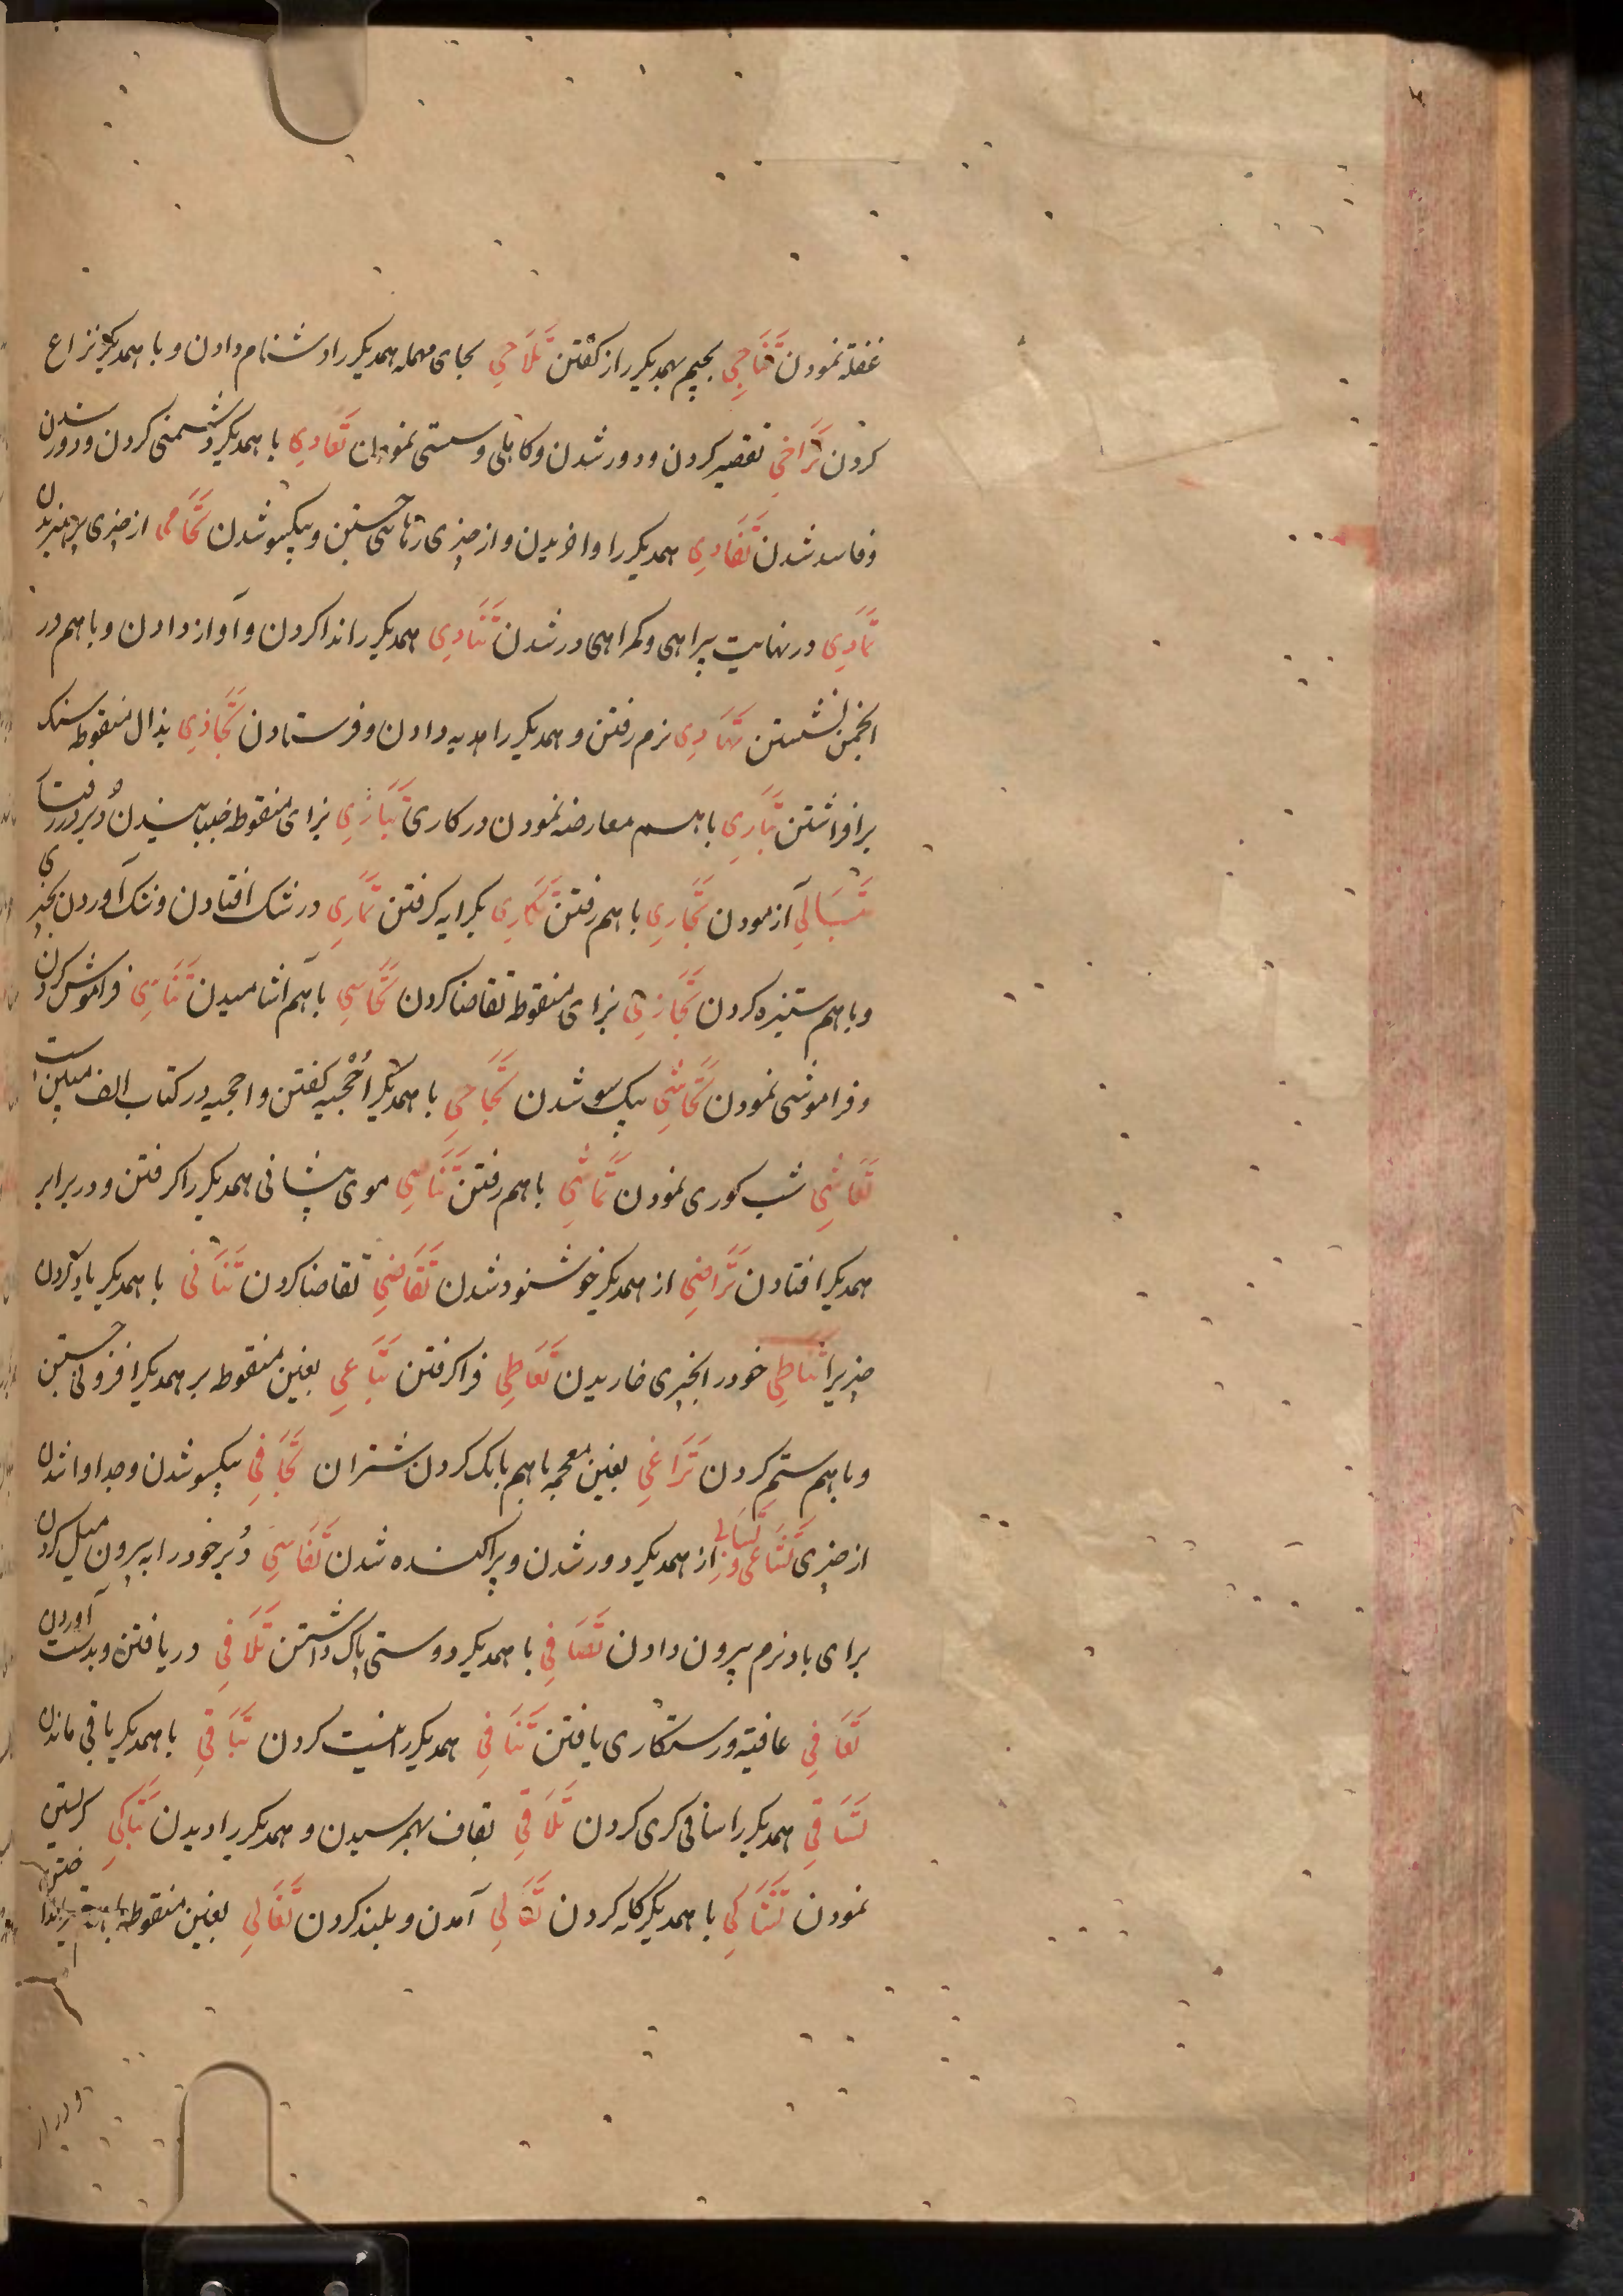 غفلة نمودن تَنَاجِي بجیم بهمدیکر راز کفتن تَلَاحِي بحای مهمله همدیکر را دشنام دادن و با همدیکر نزاع
کردن تَرَاخِي تقصیر کردن و دور شدن و کاهلی و سستی نمودن تَعَادِي با همدیکر دشمنی کردن و دور شدن
و فاسد شدن تَفَادِي همدیکر را واخریدن و از چیزی رهائی جستن و بیکسو شدن تَحَامِي از چیزی پرهیزیدن
تَمَادِي در نهایت بیراهی و کمراهی در شدن تَنَادِي همدیکر را ندا کردن و آواز دادن و باهم در
انجمن نشستن تَهَادِي نرم رفتن و همدیکر را هدیه دادن و فرستادن تَجَاذِي بذال منقوطه سنک
برافراشتن تَبَارِي باهم معارضه نمودن در کاری تَبَازِي بزای منقوطه دُبر در رفتار
تَبَالِي آزمودن تَجَارِي باهم رفتن تَكَارِي بکرایه کرفتن تَمَارِي در شک افتادن و شک آوردن بچیزی
و باهم ستیزه کردن تَجَازِي بزای منقوطه تقاضا کردن تَحَاسِي باهم آشامیدن تَنَاسِي فراموش کردن
و فراموشی نمودن تَحَاشِي بیک سو شدن تَحَاجِي با همدیکر اُحْجیه کفتن و احجیه در کتاب الف مبین است
تَعَاشِي شب کوری نمودن تَمَاشِي باهم رفتن تَنَاصِي موی پیشانی همدیکر را کرفتن و در برابر
همدیکر افتادن تَرَاضِي از همدیکر خوشنود شدن تَقَاضِي تقاضا کردن تَنَاثِي با همدیکر یاد کردن
چیزیرا تَبَاطِي خود را بچیزی خاریدن تَعَاطِي فرا کرفتن تَبَاغِي بغین منقوطه بر همدیکر افزونی جستن
و باهم ستم کردن تَرَاغِي بغین معجمه باهم بانک کردن شتران تَجَافِي بیکسو شدن و جدا واشدن
از چیزی تَشَاعِي از همدیکر دور شدن و پراکنده شدن تَفَاسِي دُبر خود را به بیرون میل کردن
برای باد نرم بیرون دادن تَصَافِي با همدیکر دوستی پاک داشتن تَلَافِي دریافتن و بدست آوردن
تَعَافِي عافیته و رستکاری یافتن تَنَافِي همدیکر را نیست کردن تَبَاقِي با همدیکر باقی ماندن
تَسَاقِي همدیکر را ساقی کری کردن تَلَاقِي بقاف بهم رسیدن و همدیکر را دیدن تَبَاكِي کریستن
نمودن تَشَاكِي با همدیکر کله کردن تَعَالِي آمدن و بلند کردن تَغَالِي بغین منقوطه